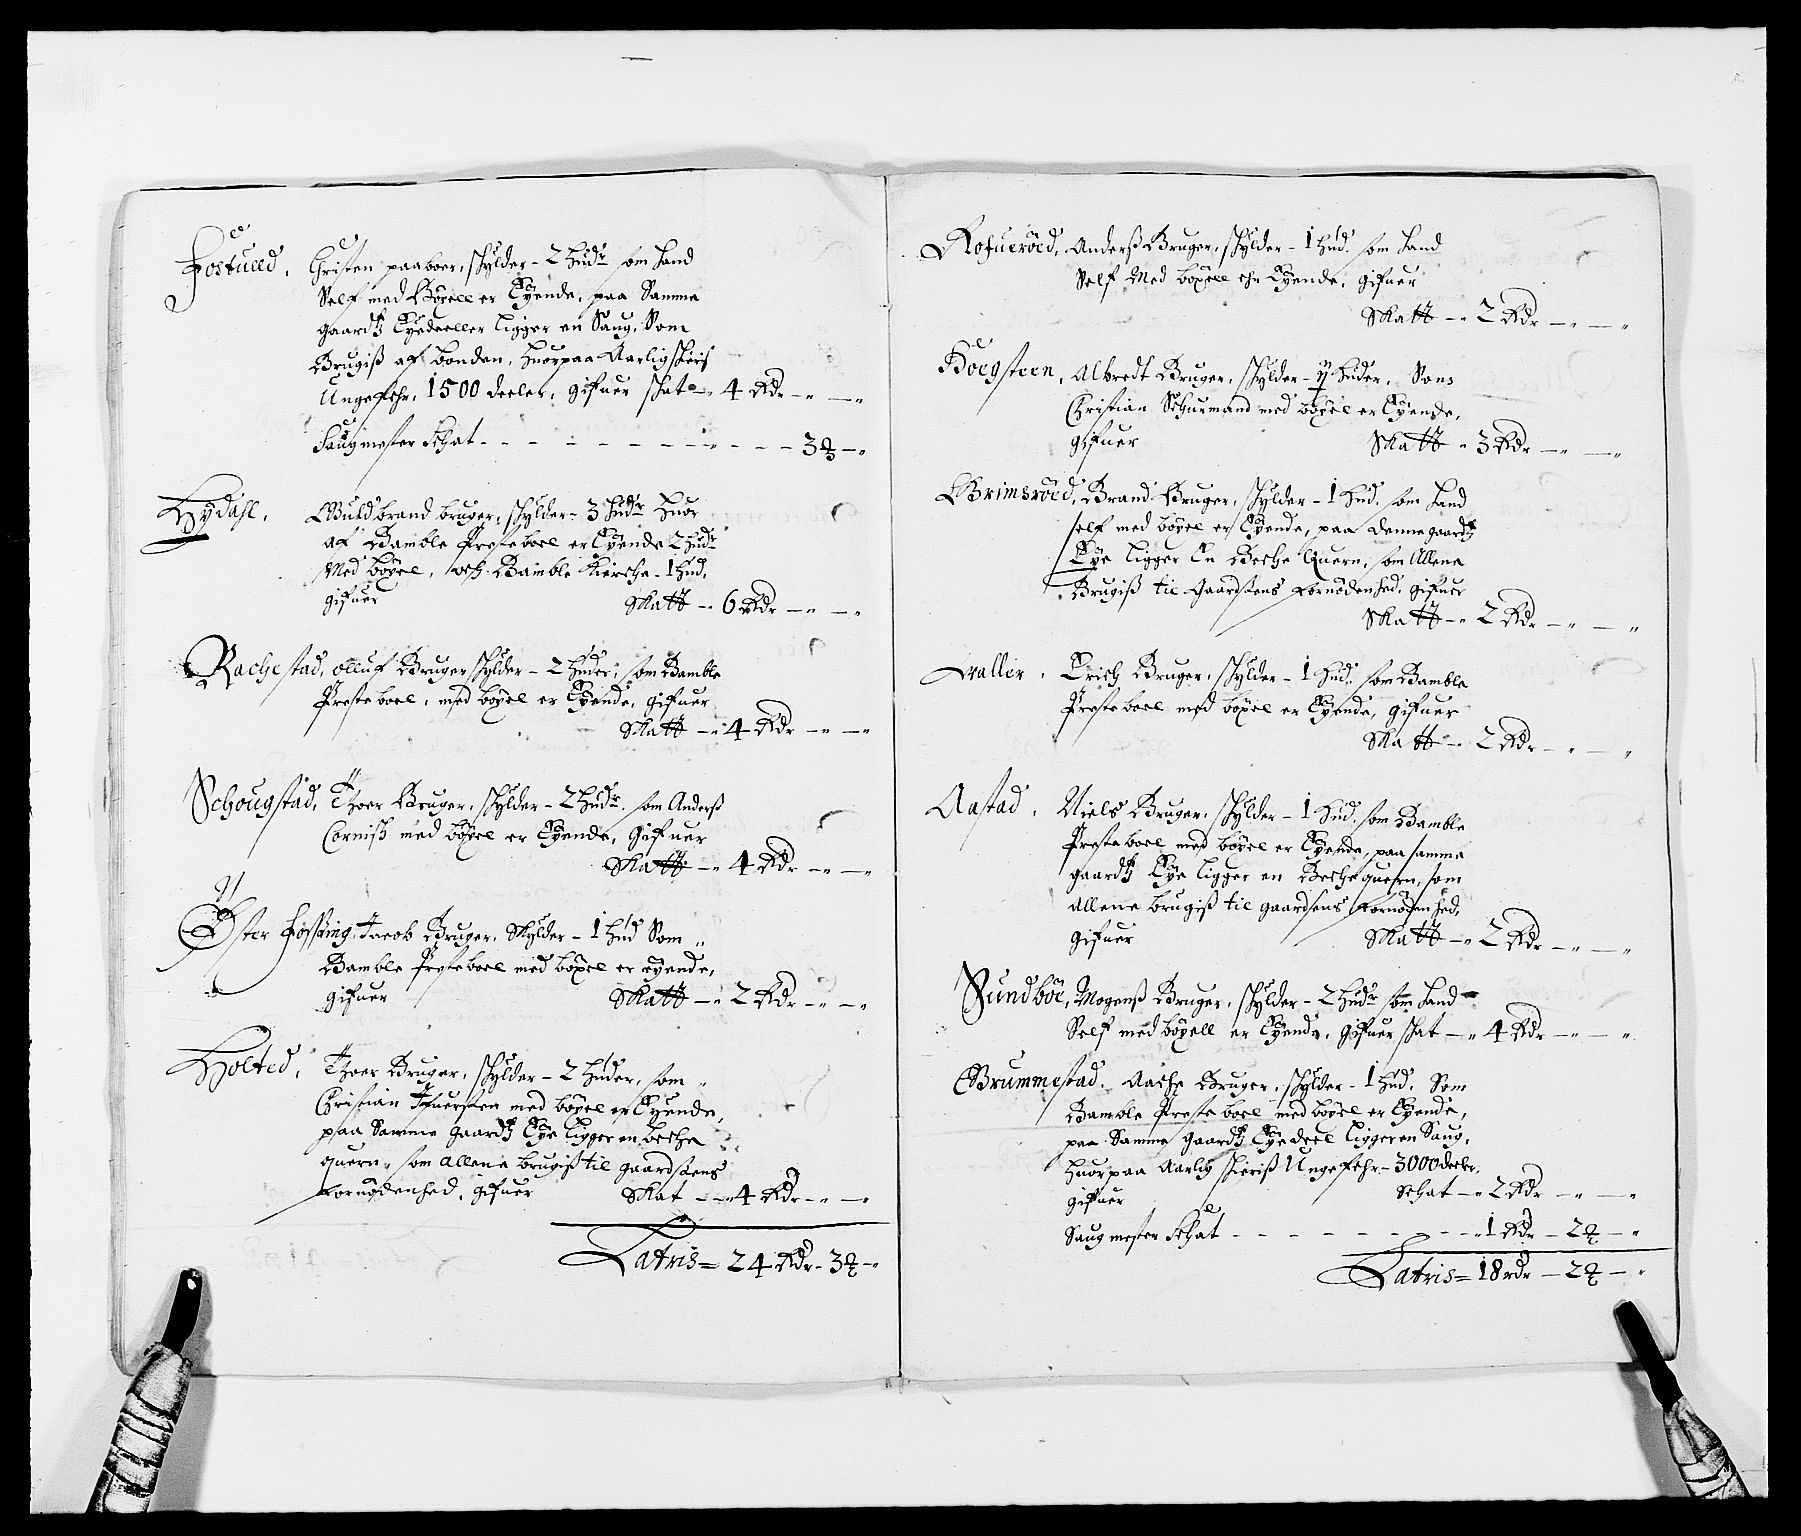 Fostued, Christen paaboer, skylder - 2 hudr som hand
Self med Böxell er Eyende, paa Samme
gaardtz Eyedeeller ligger en Saug, Som
Brugiß af bonden, huorpaa Aarlig skiers
Ungefehr, 1500 deeler, gifuer skat - 4 Rdr - " - "
Saugmester Schat - - - - - - - - 3 # - "
Hydahl, Guldbrand bruger, skylder - 3 hudr huor
af Bamble Presteboel er Eyende 2 hudr
Med böxel, och Bamble Kierche - 1 hud,
gifuer Skatt - 6 Rdr - " - "
Rachestad, olluf Bruger skylder - 2 huder, som Bamble
Presteboel, med böxel er Eyende, gifuer
Skatt - 4 Rdr - " - "
Schougstad, Thoer Bruger, skylder - 2 hudr, som Anderß
Corniß med böxel er Eyende, Gifuer
Skatt - 4 Rdr - " - "
Öster fossing, Jacob Bruger, Skylder - 1 hud Som
Bamble Presteboel med böxel er eyende,
gifuer Skatt - 2 Rdr - " - "
Holted, Thoer Bruger, skylder - 2 huder, som
Christian med böxel er Eyende,
paa Samme gaardtz Eye ligger en beche
quern, som allene brugiß til gaardsens
fornödenhed, gifuer Skat - 4 Rdr - " - "
Latris = 24 Rdr - 3 # - "
Rofueröed, Anderß Bruger, skylder - 1 hud, som hand
Self Med böxell ehr Eyende, gifuer
Skatt - 2 Rdr - " - "
Hoegsteen, Albredt Bruger, skylder - huder, Som
Christian Schurmand med böxel er Eyende,
gifuer Skatt - 3 Rdr - " - "
Grimsröed, Brand Bruger, skylder - 1 hud, som hand
self med böxel er Eyende, paa denne gaardtz
Eye ligger En Beche Quern, som Allene
Brugiß til Gaardsens fornödenhed, gifuer
Skatt - 2 Rdr - " - "
Valler, Erich Bruger, skylder - 1 hud, som Bamble
Presteboel med böxel er Eyende, gifuer
Skatt - 2 Rdr - " - "
Aastad, Niels Bruger, skylder - 1 hud, som Bamble
Presteboel med böxel er Eyende, paa samme
gaardtz Eye ligger en Beche quern, som
allene brugiß til gaardsens fornödenhed,
gifuer Skatt - 2 Rdr - " - "
Sundböe, Mogenß Bruger, skylder - 2 hudr som hand
Self med böxell er Eyende, gifuer skat - 4 Rdr - " - "
Grummestad, Aache Bruger, skylder - 1 hud, Som
Bamble Presteboel med böxel er Eyende,
paa Samme gaardtz Eyedeel ligger en Saug,
huorpaa Aarlig skieriß Ungefehr - 3000 deeler,
gifuer Schat - 2 Rdr - " - "
Saugmester Schat - - - - - - 1 Rdr - 2 # - "
Latris = 18 rdr - 2 # - "